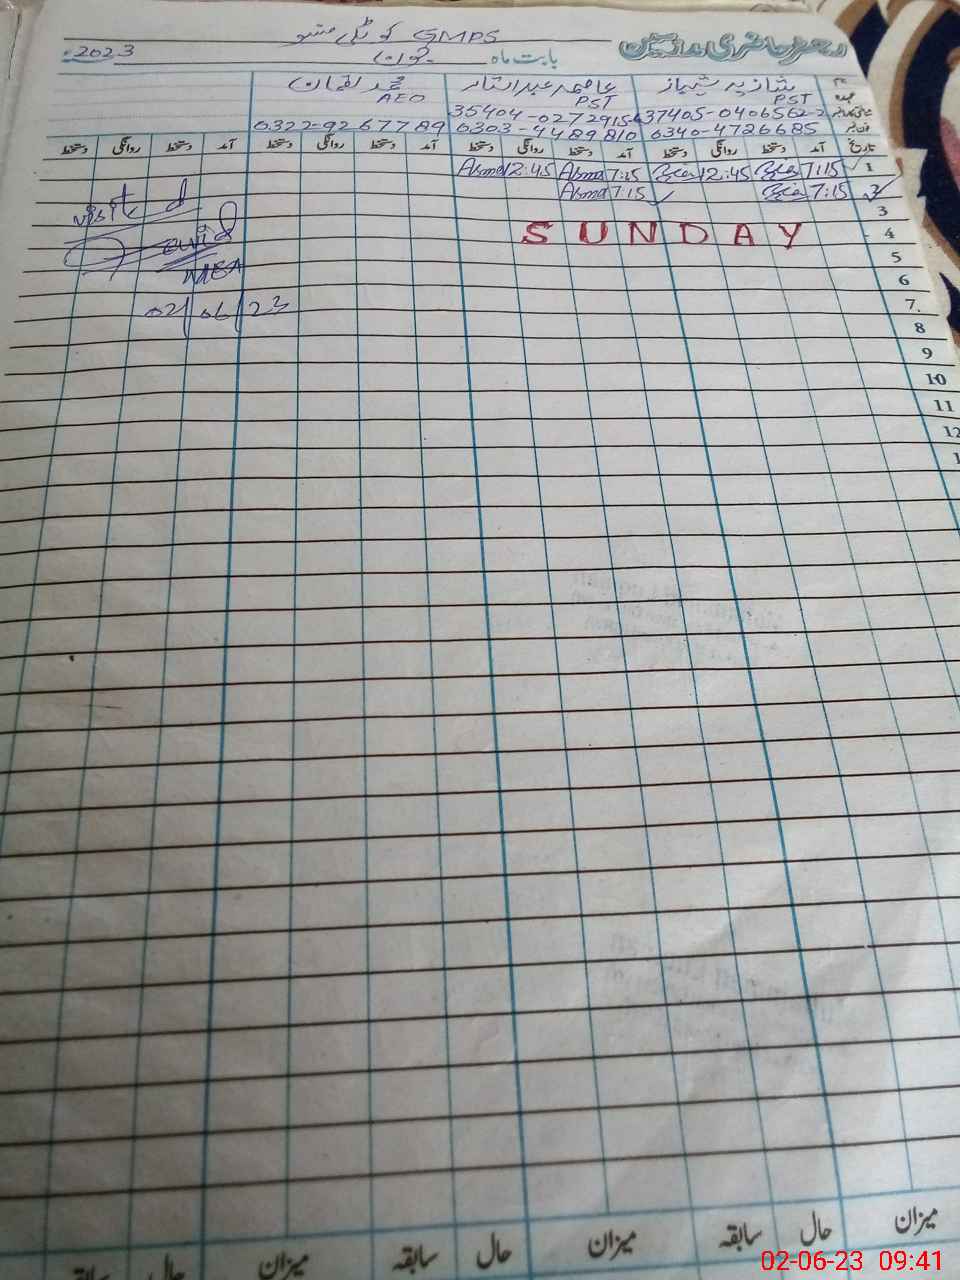 رجسٹر حاضری ملازمین
GMPS کوٹلی
بابت ماہ جون 2023
نام شازیہ شہباز عاصمہ عبدالستار محمد لقمان
عہدہ PST PST AEO
37405-0406562-2 35404-0272915-6
0340-4726685 0303-4489810 0322-9267789
تاریخ آمد دستخط روانگی دستخط آمد دستخط روانگی دستخط آمد دستخط روانگی دستخط آمد دستخط روانگی دستخط
1 7:15 12:45 7:15 Asma 12:45 Asma
2 7:15 7:15 Asma
3
4 SUNDAY
5
6
7
8
9
10
11
12
1
Visited
MEA
02/06/23
میزان حال سابقہ میزان حال سابقہ میزان حال سابقہ
02-06-23 09:41